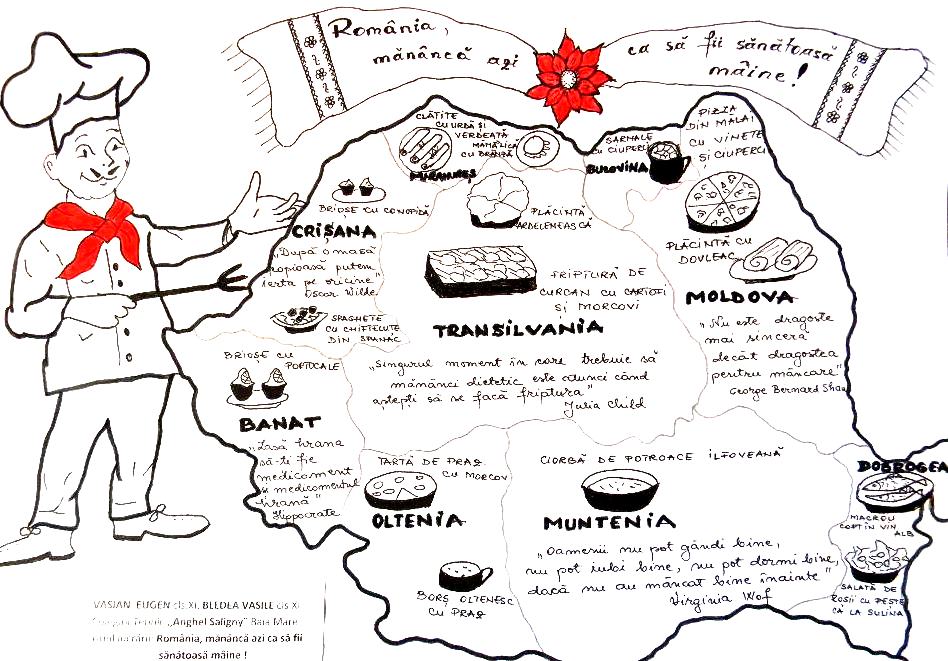 România,
mănâncă azi
ca să fii sănătoasă
mâine!
CLĂTITE
CU URDĂ ȘI
VERDEAȚĂ
MĂMĂLIGĂ
CU BRÂNZĂ
MARAMUREȘ
SARMALE
CU CIUPERCI
BUCOVINA
PIZZA
DIN MĂLAI
CU VINETE
ȘI CIUPERCI
BRIOȘE CU CONOPIDĂ
CRIȘANA
„După o masă
copioasă putem
ierta pe oricine"
Oscar Wilde
SPAGHETE
CU CHIFTELUȚE
DIN SPANAC
PLĂCINTĂ
ARDELENEASCĂ
FRIPTURĂ DE
CURCAN CU CARTOFI
ȘI MORCOVI
TRANSILVANIA
„Singurul moment în care trebuie să
mănânci dietetic este atunci când
aștepți să se facă friptura"
Julia Child
PLĂCINTĂ CU
DOVLEAC
MOLDOVA
„Nu este dragoste
mai sinceră
decât dragostea
pentru mâncare"
George Bernard Shaw
BRIOȘE CU
PORTOCALE
BANAT
„Lasă hrana
să-ți fie
medicament
și medicamentul
hrană"
Hippocrate
TARTĂ DE PRAZ
CU MORCOV
OLTENIA
BORȘ OLTENESC
CU PRAZ
CIORBĂ DE POTROACE ILFOVEANĂ
MUNTENIA
„Oamenii nu pot gândi bine,
nu pot iubi bine, nu pot dormi bine,
dacă nu au mâncat bine înainte"
Virginia Wolf
DOBROGEA
MACROU
COPT IN VIN
ALB
SALATĂ DE
ROȘII CU PEȘTE
CA LA SULINA
VASIAN EUGEN cls XI, BLEDEA VASILE cls XI
Colegiul Tehnic „Anghel Saligny" Baia Mare
România, mănâncă azi ca să fii
sănătoasă mâine !